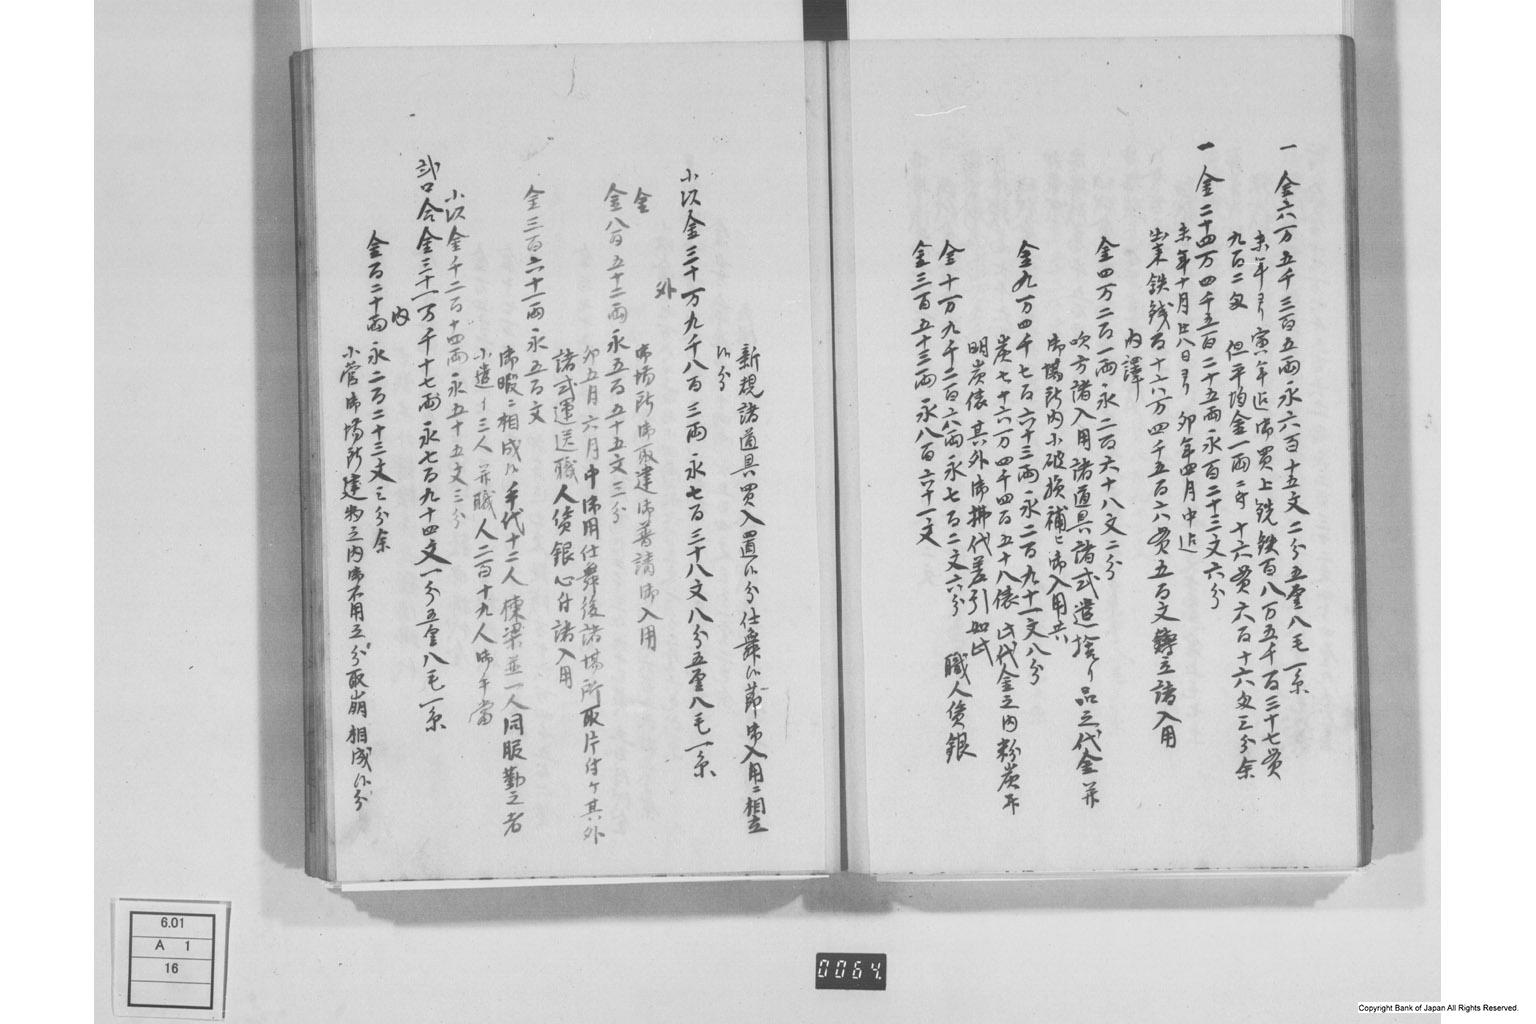 一 金六万五千三百五両永六百十五文二分五厘八毛一糸
未年ヨリ寅年迄御買上銑鉄百八万五千百三十七貫
九百二匁 但平均金一両ニ付十六貫六百十六匁三分余
一 金二十四万四千五百二十五両永百二十三文六分
未年十月廿八日ヨリ卯年四月中迄
出来鉄銭百十六万四千五百六貫五百文鋳立諸入用
内譯
金四万二百一両永二百六十八文二分
吹方諸入用諸道具諸式遣捨リ品之代金并
御場所内小破損補ヒ御入用共
金九万四千七百六十三両永二百九十一文八分
炭七十六万四千四百五十八俵此代金之内粉炭并
明炭俵其外御拂代差引如此
金十万九千二百六両永七百二文六分 職人賃銀
金三百五十三両永八百六十一文
新規諸道具買入置候分仕舞候節御入用ニ相立
候分
小以金三十万九千八百三両永七百三十八文八分五厘八毛一糸
外
金 御場所御取建御普請御入用
金八百五十二両永五百五十五文三分
卯五月六月中御用仕舞後諸場所取片付ケ其外
諸式運送職人賃銀心付諸入用
金三百六十一両永五百文
御暇ニ相成候手代十二人棟梁並一人同服勤之者
小遣十三人并職人二百十九人御手当
小以金千二百十四両永五十五文三分
弐口合金三十一万千十七両永七百九十四文一分五厘八毛一糸
内
金百二十両永二百二十三文三分余
小菅御場所建物之内御不用之分取崩相成候分
6.01
A 1
16
0064.
Copyright Bank of Japan All Rights Reserved.